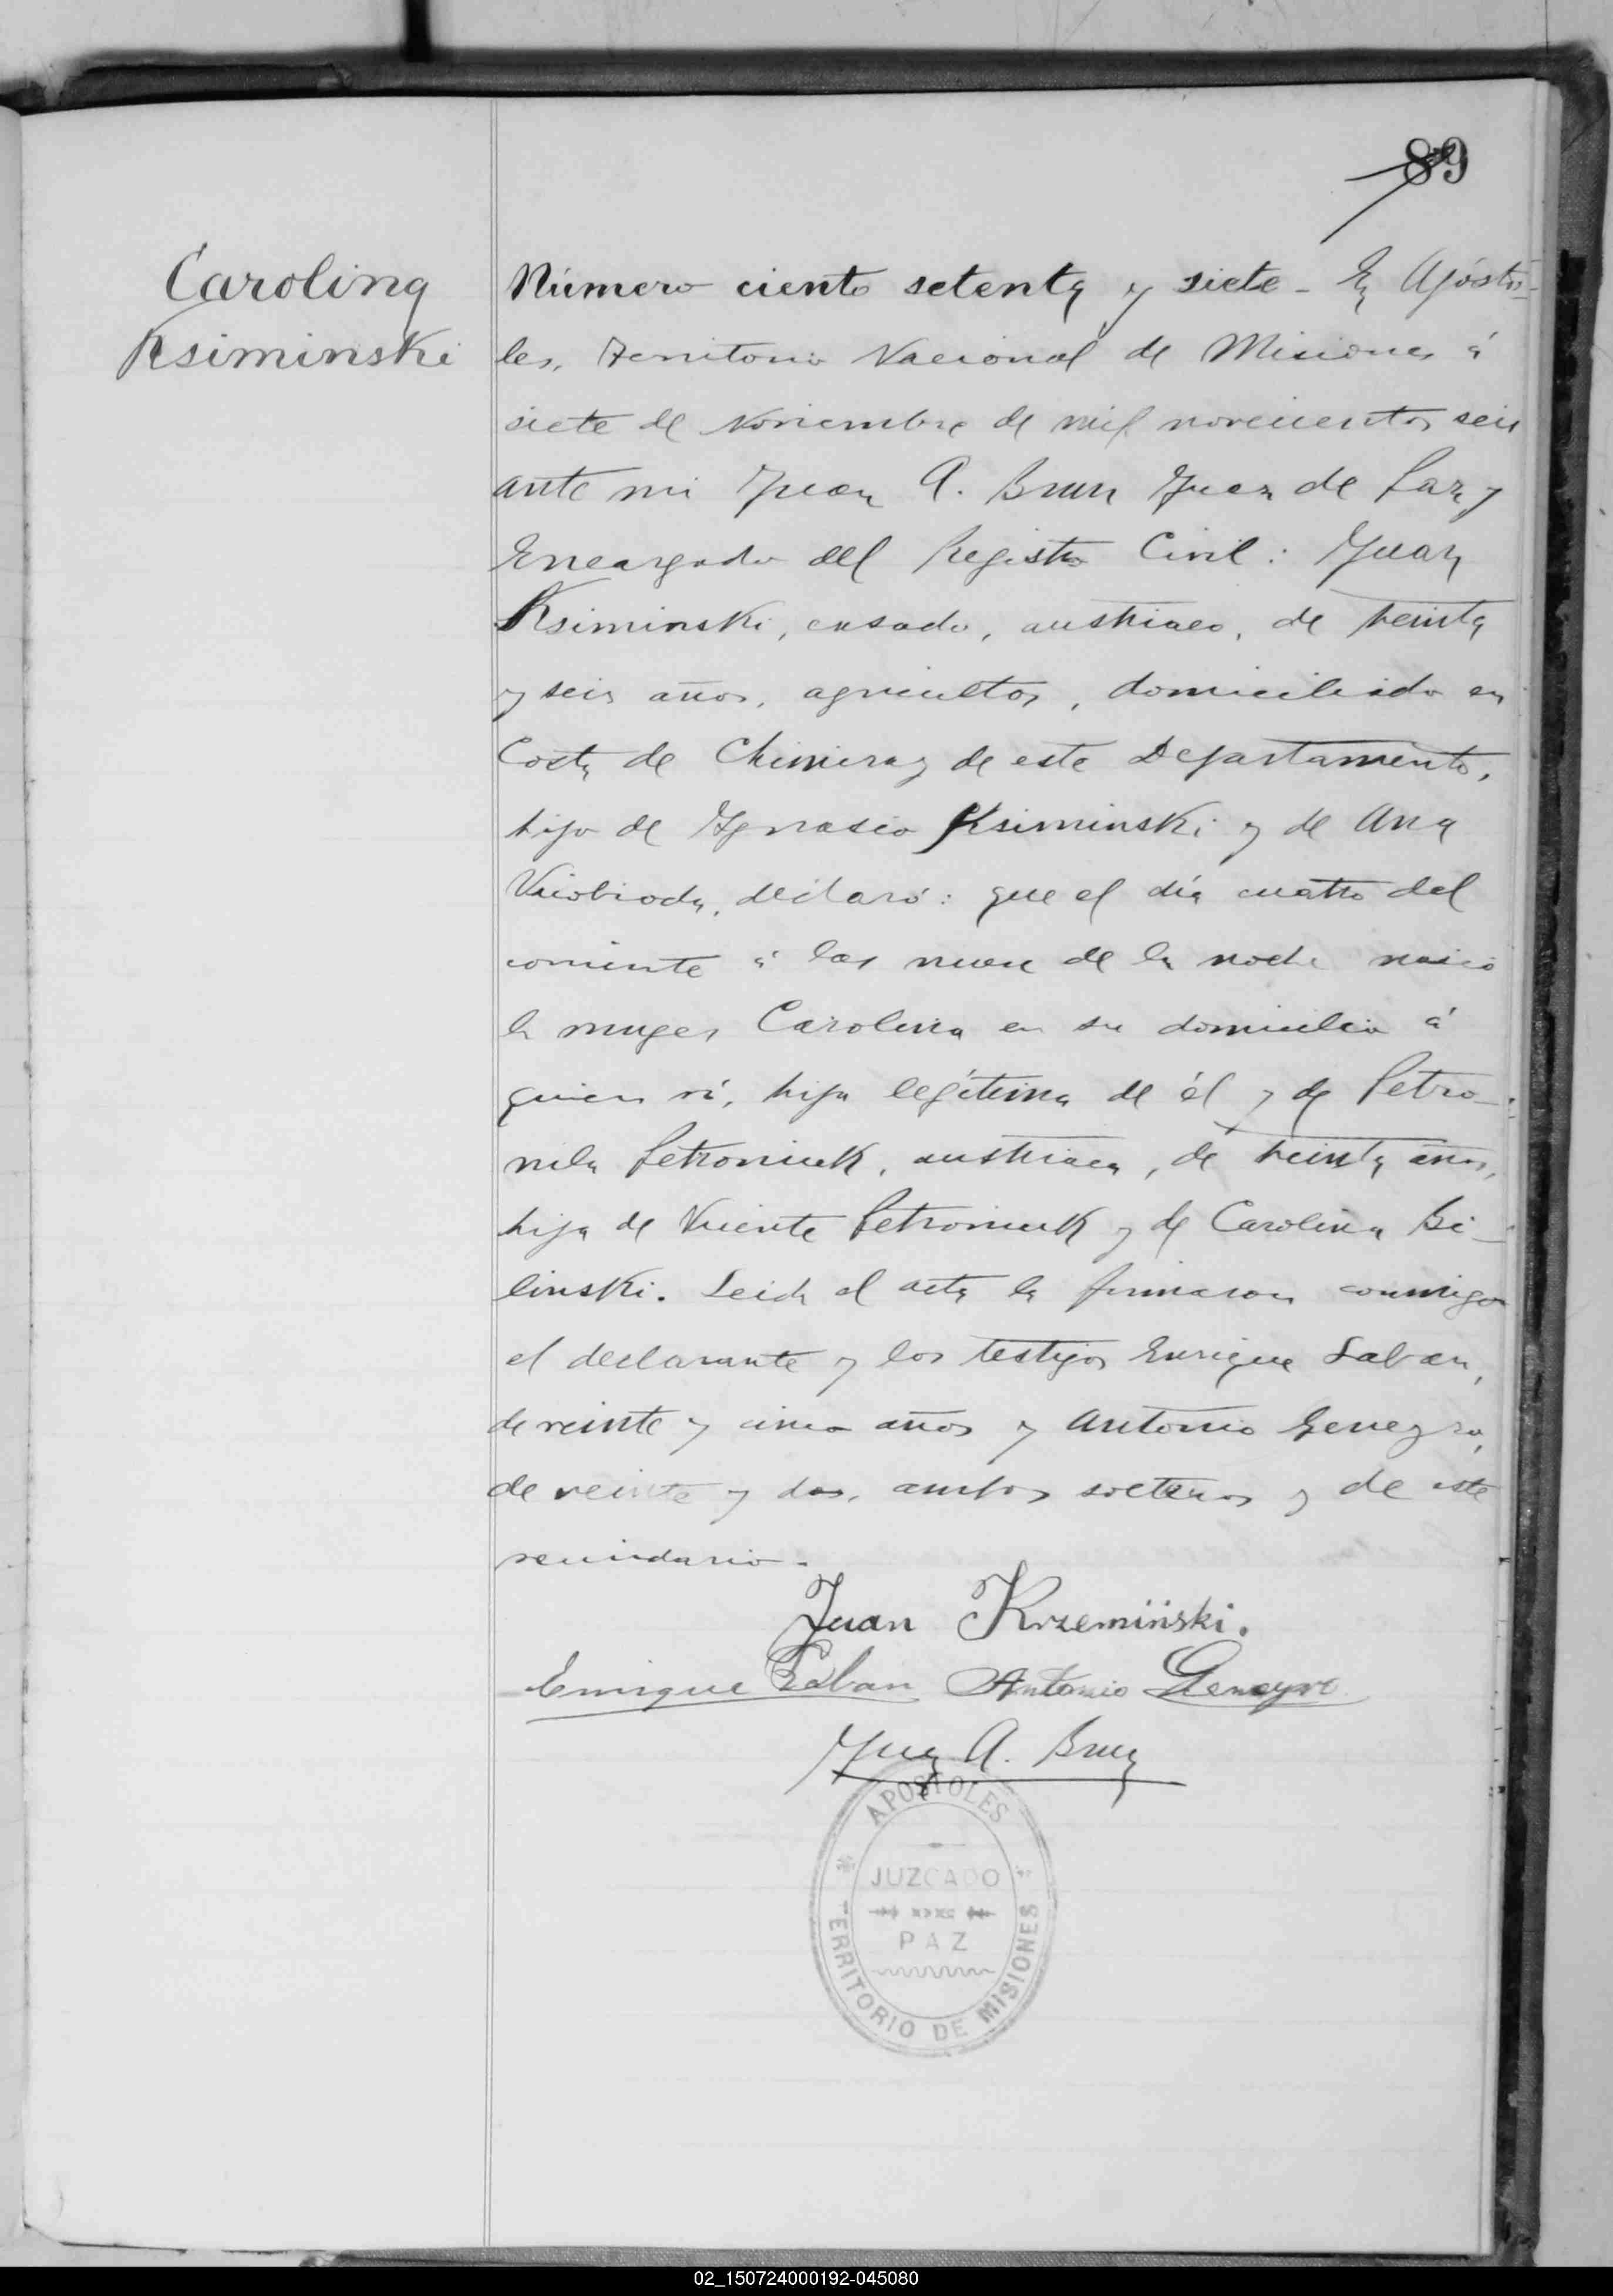 89
Carolina
Ksiminski
Número ciento setenta y siete - En Apósto-
les, Territorio Nacional de Misiones á
siete de Noviembre de mil novecientos seis
ante mi Juan A. Brun Juez de Paz y
Encargado del Registro Civil: Juan
Ksiminski, casado, austriaco, de treinta
y seis años, agricultor, domiciliado en
Costa de Chimiray de este Departamento,
hijo de Ygnacio Ksiminski y de Ana
declaró: que el día cuatro del
corriente á las nueve de la noche nació
la muger Carolina en su domicilio á
quien ví, hija legítima de él y de Petro-
nila Petroniuk, austriaca, de treinta años,
hija de Vicente Petroniuk y de Carolina Bi-
linski. Leida el acta la firmaron conmigo
el declarante y los testigos Enrique Laban,
de veinte y cinco años y Antonio Geneyro,
de veinte y dos, ambos solteros y de este
vecindario.
Juan Krzemiński.
Enrique Laban Antonio Geneyro
Juan A. Brun
APOSTOLES
JUZGADO
PAZ
TERRITORIO DE MISIONES
02_150724000192-045080